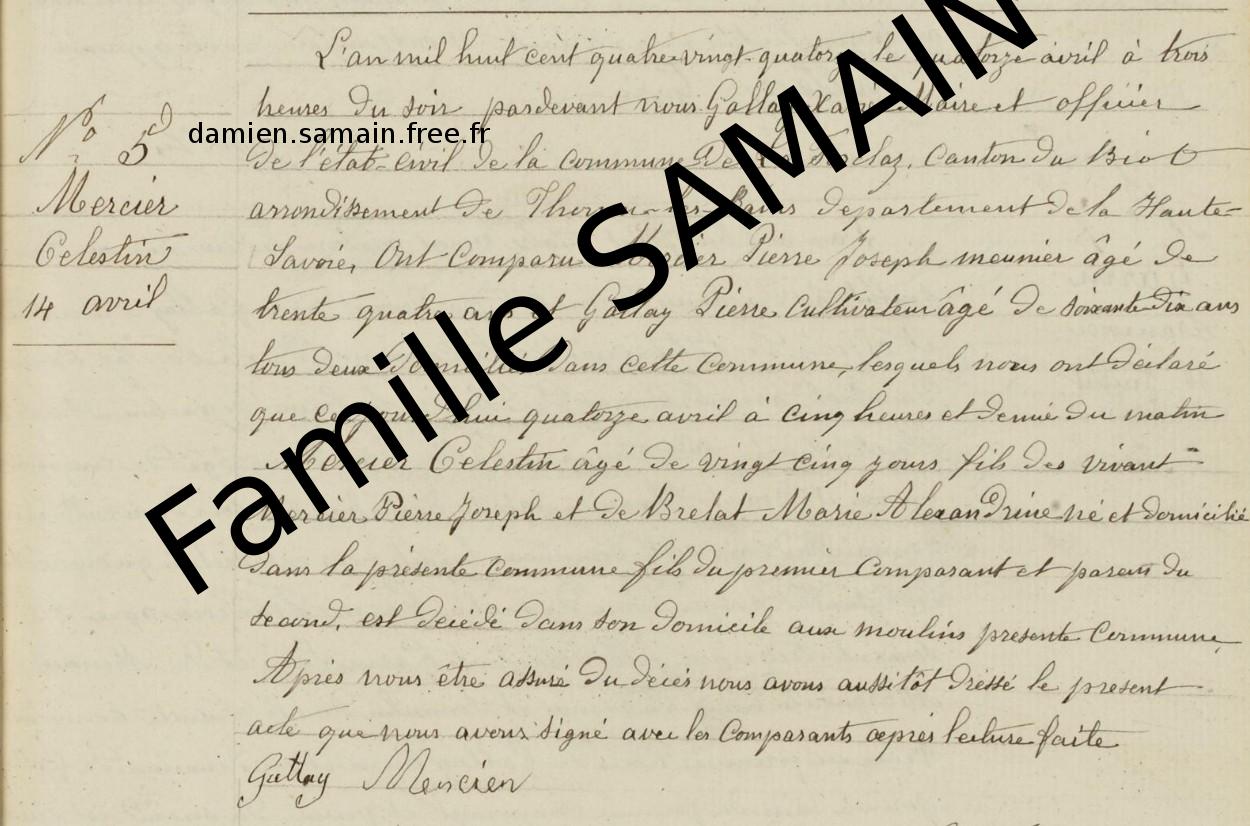 L'an mil huit cent quatre vingt quatorze le quatorze avril à trois
heures du soir pardevant nous Gallay Maire et officier
N° 5 d
damien.samain.free.fr
de l'état-civil de la commune De La Forclaz, Canton du Biot
Mercier
arrondissement de Thonon-les-Bains departement de la Haute-
Celestin
Savoie, Ont Comparu Mercier Pierre Joseph meunier âgé de
14 avril
trente quatre ans et Gallay Pierre Cultivateur âgé de soixante dix ans
tous deux Domiciliés dans cette Commune, lesquels nous ont déclaré
que cejourd'hui quatorze avril à cinq heures et demie du matin
Mercier Celestin âgé de vingt cinq jours fils des vivant
Mercier Pierre Joseph et de Brelat Marie Alexandrine né et domicilié
Dans la présente Commune fils du premier Comparant et parent du
second, est décédé dans son domicile aux moulins presente Commune,
Après nous être assuré du décés nous avons aussitôt dressé le present
acte que nous avons signé avec les Comparants après lecture faite
Gallay Mercier
Famille SAMAIN